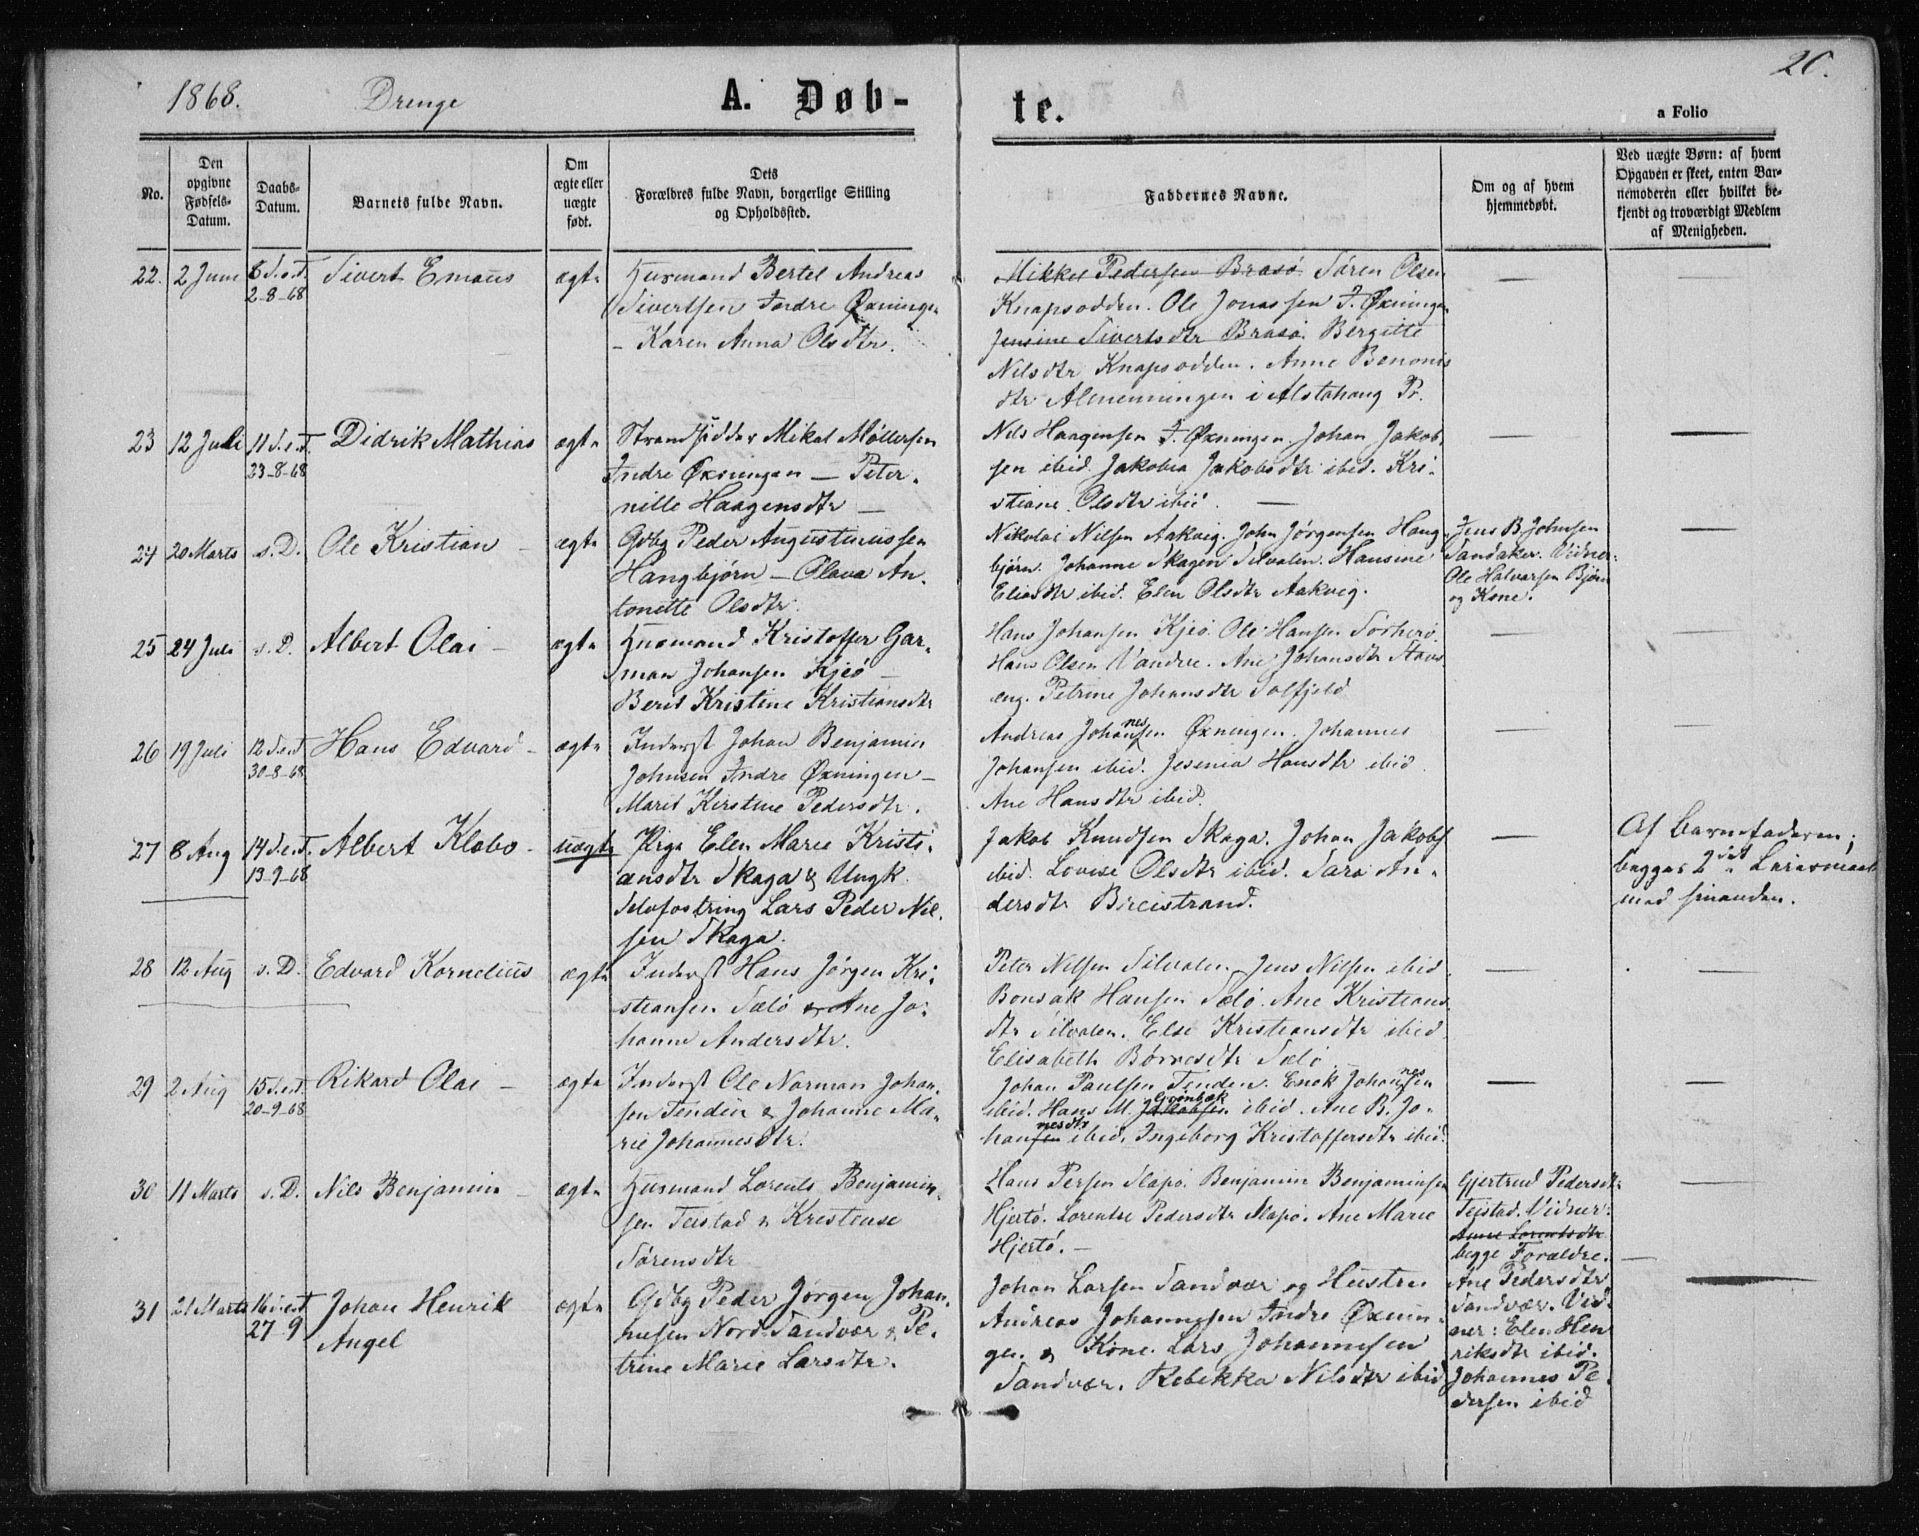 1868.
Drenge
A. Døb-
te.
20.
a Folio
No.
Den
opgivne
Fødsels-
Datum.
Daabs-
Datum.
Barnets fulde Navn.
Om
ægte eller
uægte
født.
Dets
Forældres fulde Navn, borgerlige Stilling
og Opholdssted.
Faddernes Navne.
Om og af hvem
hjemmedøbt.
Ved uægte Børn: af hvem
Opgaven er skeet, enten Bar-
nemoderen eller hvilket be-
kjendt og troværdigt Medlem
af Menigheden.
22. 2 Juni 8 S.e.T.
2-8-68
Sivert Emaus
ægte
Husmand Bertel Andreas
Sivertsen Indre Øxningen
- Karen Anna Olsdtr.
Mikkel Pedersen Brasø. Søren Olsen
Knapsodden. Ole Jonassen I. Øxningen
Jensine Sivertsdtr Brasø. Bergitte
Nilsdtr Knapsodden. Anne Benonis
dtr Almenningen i Alstahaug Pr.
—
—
23 12 Juli 11 S.e.T.
23-8-68
Didrik Mathias
ægte
Strandsidder Mikal Møllersen
Indre Øxningen — Peter-
nille Haagensdtr —
Nils Haagensen I. Øxningen. Johan Jakob
sen ibid. Jakobea Jakobsdtr ibid. Kri-
stiane Olsdtr ibid. —
—
—
24 20 Marts s.D.
Ole Kristian -
ægte
Gdbg Peder Augustinussen
Hangbjørn — Olava An-
tonette Olsdtr.
Nikolai Nilsen Aakvig. John Jørgensen Hang
bjørn. Johanne Skagen Silvalen. Hansine
Eliasdtr ibid. Elen Olsdtr Aakvig.
Jens B. Johnsen
Sandaker. Vidner:
Ole Halvorsen Bjørn
og Kone.
—
25 24 Juli s.D.
Albert Olai -
ægte
Husmand Kristoffer Gar-
man Johansen Kjeø -
Berit Kristine Kristiansdtr
Hans Johansen Kjeø. Ole Hansen Sørherø.
Hans Olsen Vandve. Ane Johansdtr Stavs
eng. Petrine Johansdtr Solfjeld
—
—
26 19 Juli 12 S.e.T
30-8-68
Hans Edvard -
ægte
Inderst Johan Benjamin
Johnsen Indre Øxningen -
Marit Kirstine Pedersdtr.
Andreas Johannessen Øxningen. Johannes
Johansen ibid. Jesenia Hansdtr ibid.
Ane Hansdtr ibid.
—
—
27 8 Aug 14 S.e.T.
13-9-68
Albert Klobo -
uægte
Pige Elen Marie Kristi-
ansdtr Skaga & Ungk.
Selvfostring Lars Peder Nil-
sen Skaga.
Jakob Knudsen Skaga. Johan Jakobs
ibid. Lovise Olsdtr ibid. Sara An-
dersdtr Breistrand.
—
Af Barnefaderen;
begges 2det Leiermaal
med hinanden.
28 12 Aug s.D.
Edvard Kornelius
ægte
Inderst Hans Jørgen Kri-
stiansen Sælø & Ane Jo-
hanne Andersdtr.
Peter Nilsen Silvalen. Jens Nilsen ibid
Bonsak Hansen Sælø. Ane Kristians
dtr Silvalen. Else Kristiansdtr ibid
Elisabeth Børresdtr Sælø.
—
—
29 2 Aug 15 S.e.T
20-9-68
Rikard Olai -
ægte
Inderst Ole Norman Johan-
sen Tenden & Johanne Ma-
rie Johannesdtr.
Johan Paulsen Tenden. Enok Johannessen
ibid. Hans M. Jakobsen Grønbæk ibid. Ane B. Jo-
hansen nesdtr ibid. Ingeborg Kristoffersdtr ibid.
—
—
30 11 Marts s.D.
Nils Benjamin -
ægte
Husmand Lorents Benjamin-
sen Teistad & Kristense
Sørensdtr
Hans Persen Slapø. Benjamin Benjaminsen
Hjertø. Lorentse Pedersdtr Slapø. Ane Marie
Hjertø. —
Gjertrud Pedersdtr
Teistad. Vidner:
Anne Lorentsdtr
begge Forældre.
—
31 21 Marts 16 S.e.T
27-9
Johan Henrik
Angel
ægte
Gdbg Peder Jørgen Johan-
nesen Nord-Sandvær & Pe-
trine Marie Larsdtr.
Johan Larsen Sandvær og Hustru
Andreas Johannesen Indre Øxnin-
gen & Kone. Lars Johannesen
Sandvær. Rebekka Nilsdtr ibid
Ane Pedersdtr
Sandvær. Vid-
ner: Elen Hen
riksdtr ibid.
Johannes Pe-
dersen ibid
—